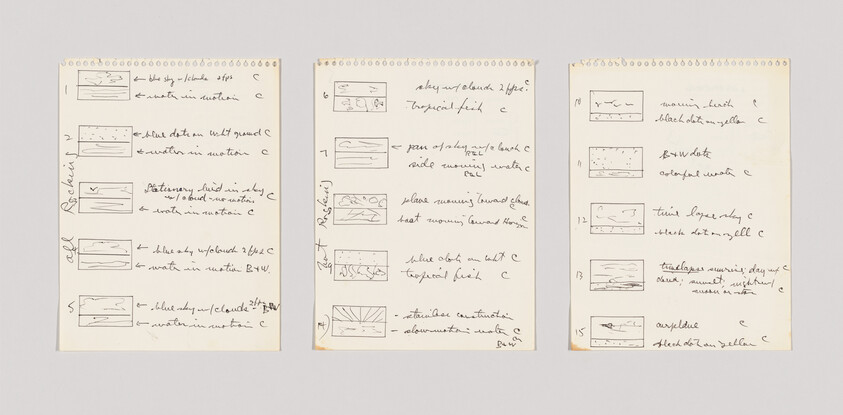 1
← blue sky w/clouds 2fps C
← water in motion C
2
← blue dots on wht ground C
← water in motion C
Stationary bird in sky
w/cloud - no motion C
← water in motion C
← blue sky w/clouds 2fps C
← water in motion B+W.
5
← blue sky w/clouds 2fps B+W
← water in motion C
all Rocking
6
sky w/clouds 2fps. C
tropical fish C
7
← pan of sky w/clouds C
R&L
side moving water C
R&L
plane moving toward clouds C
boat moving toward Horizon C
blue dots on wht C
tropical fish C
- stainless construction
- slow motion water C
or
B+W
Rocking
10
moving birds C
black dots on yellow C
11
B+W dots
colorful water C
12
time lapse sky C
black dots on yell C
13
timelapse sunrise, day w/ C
sunset, night w/ C
moon or star
15
airplane C
black dots on yellow C